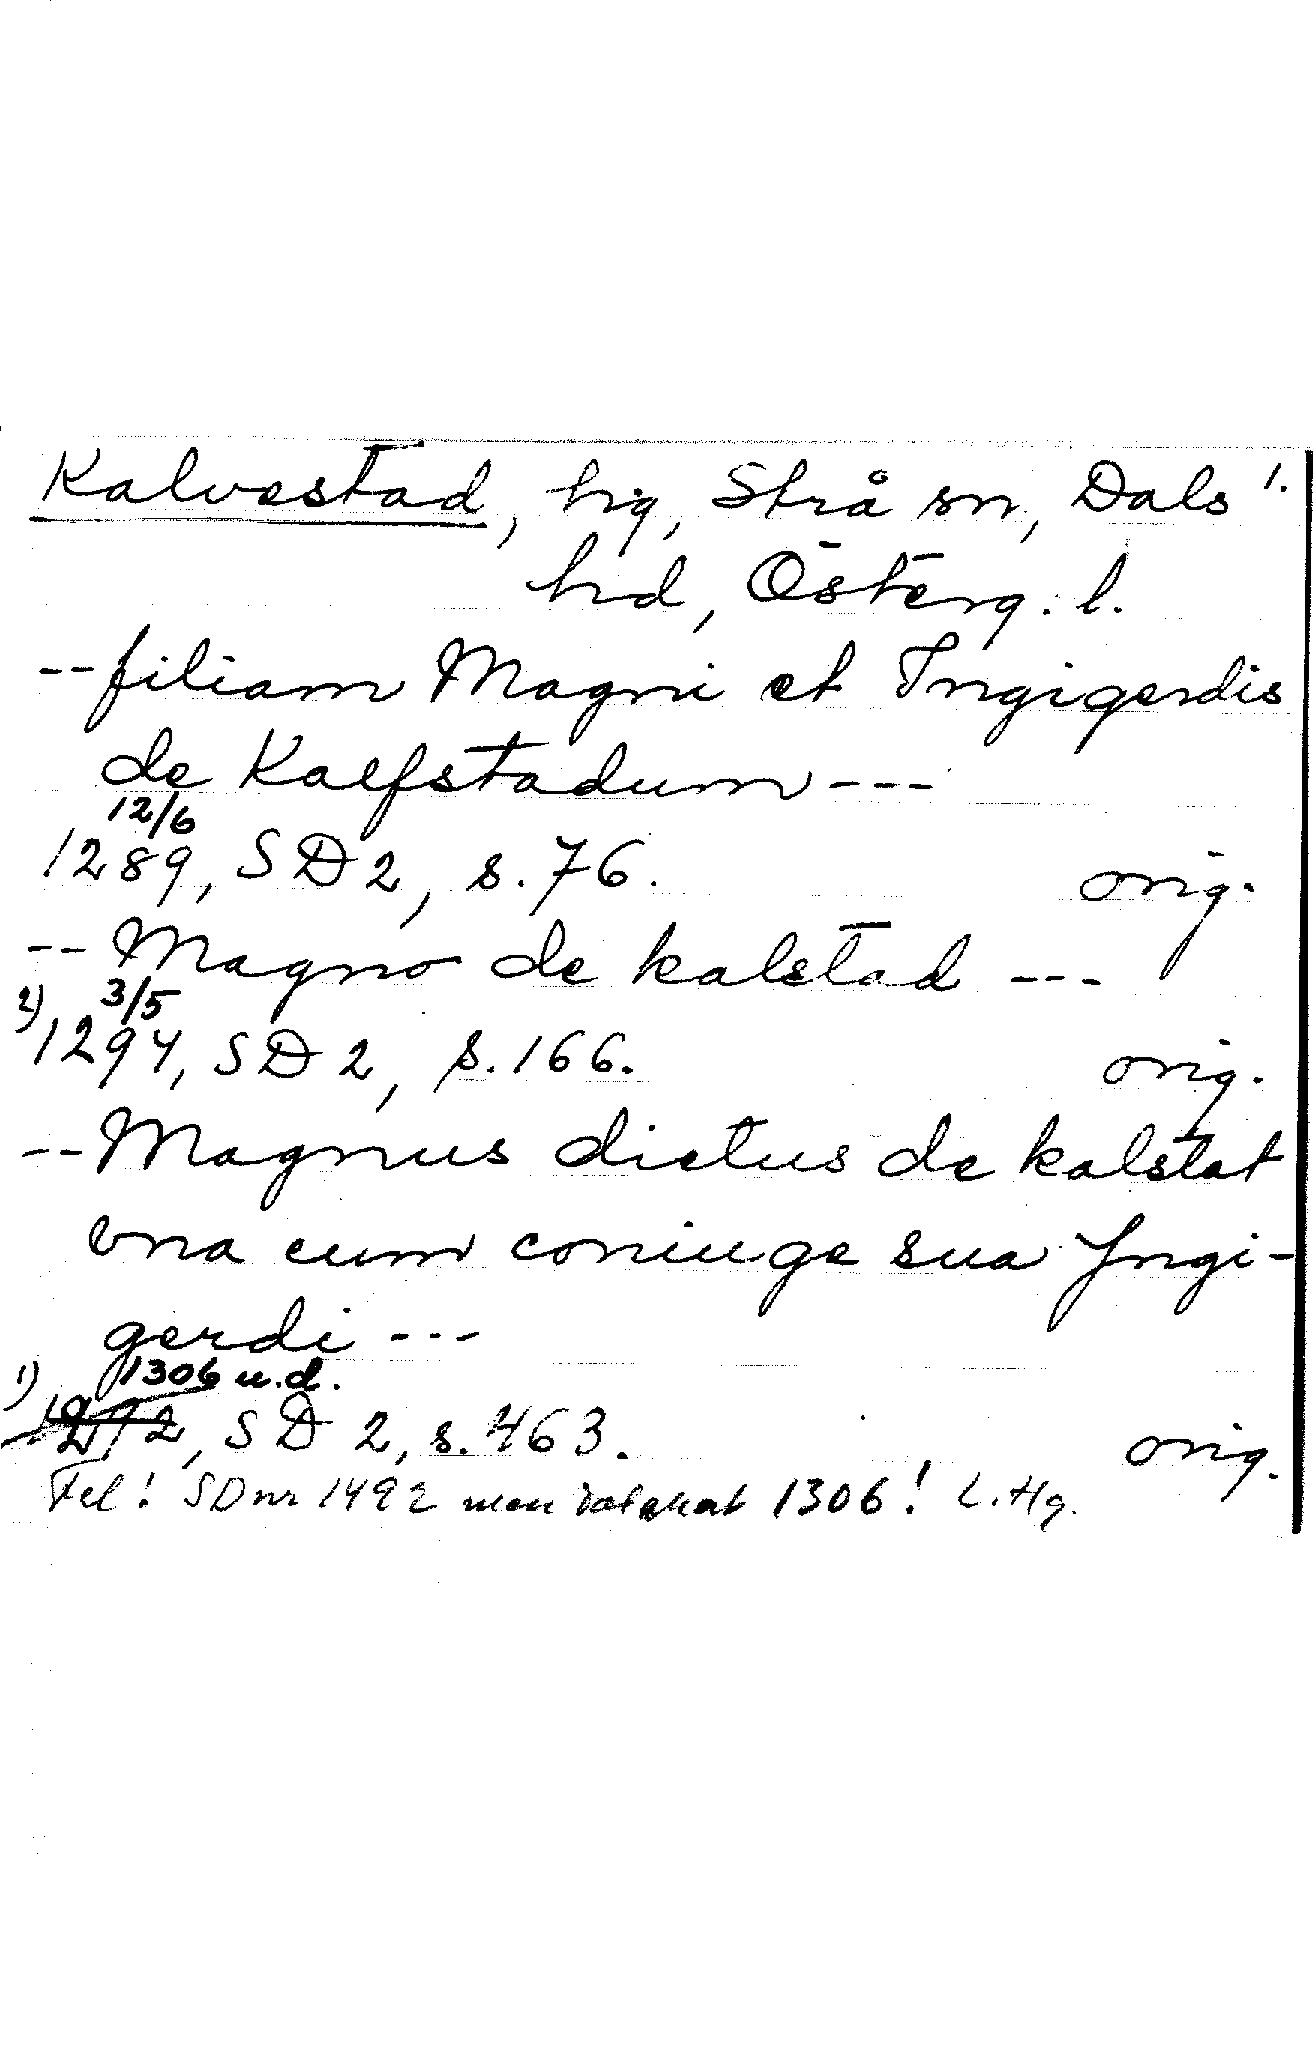 Kalvestad, hg, Strå sn, Dals 1.
hd, Österg. l.
-- filiam Magni et Ingigerdis
de Kalfstadum ---
12/6
1289, SD 2, s. 76. orig.
-- Magno de kalstad ---
2) 3/5
1294, SD 2, s. 166. orig.
-- Magnus dictus de kalstat
vna cum coniuge sua Jngi-
gerdi ---
1) 1306 u.d.
SD 2, s. 463. orig.
Fel! SD nr 1492 men daterat 1306! L. Hg.